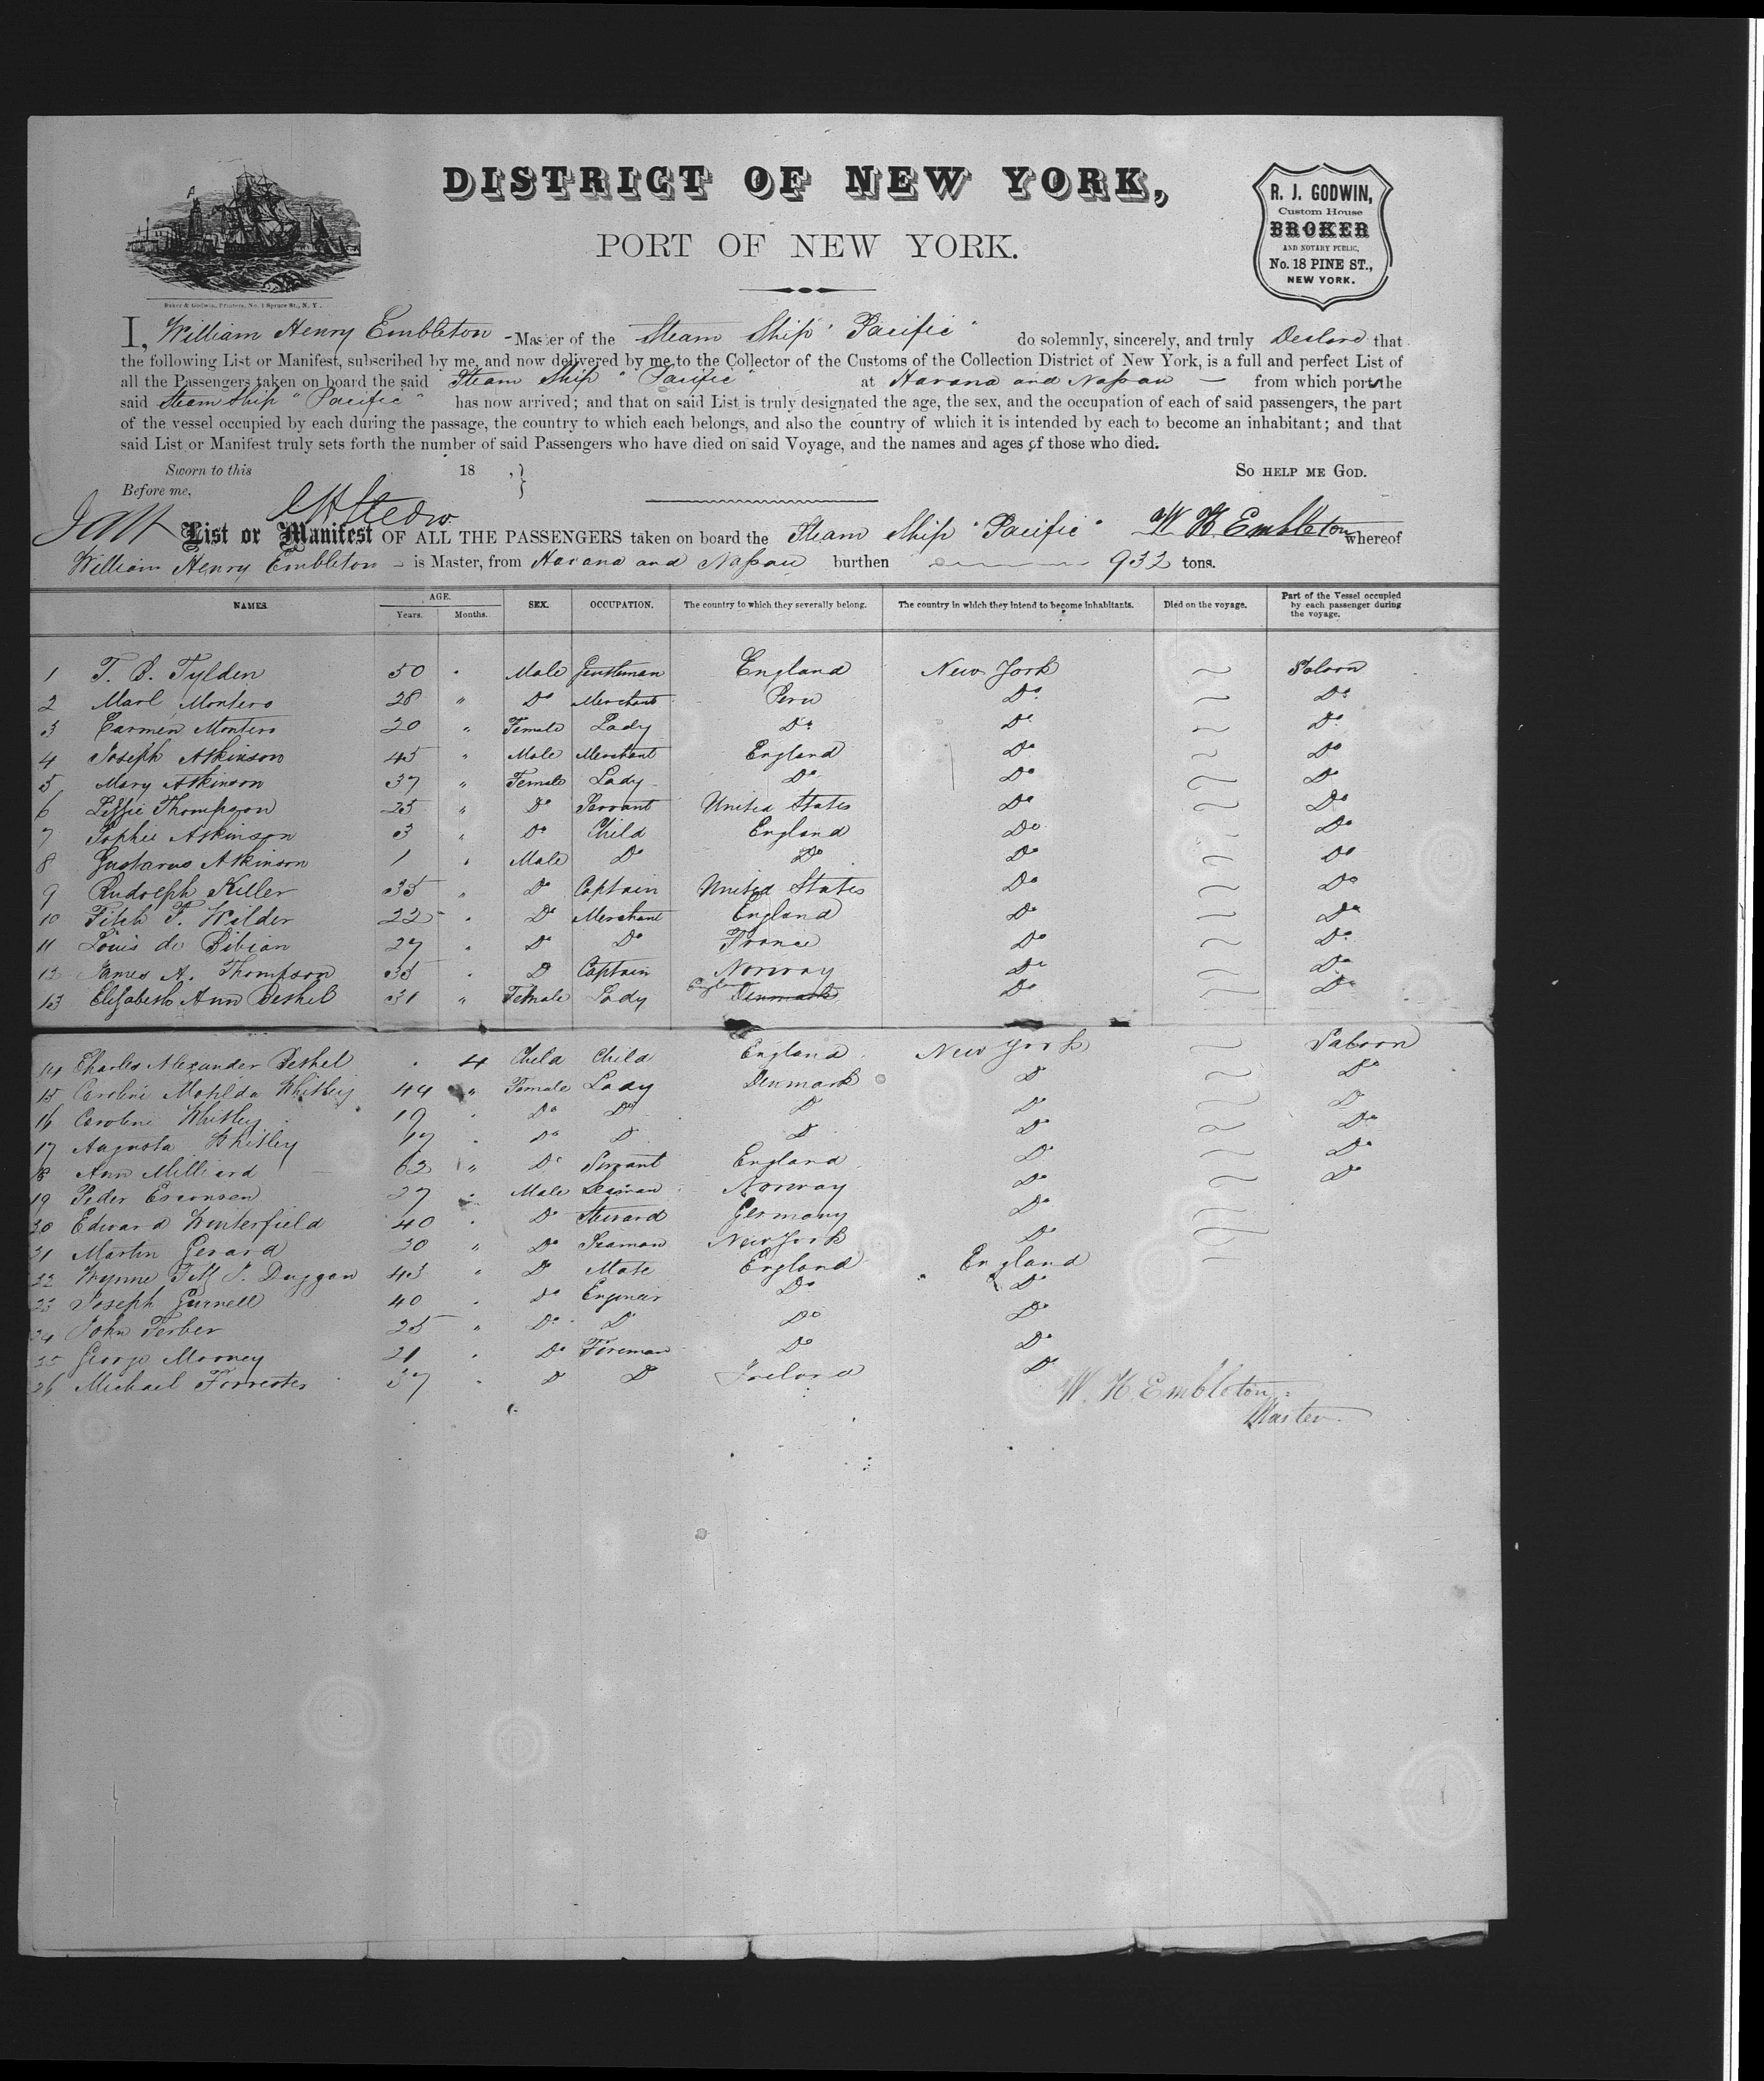 DISTRICT OF NEW YORK,
PORT OF NEW YORK.
R. J. GODWIN,
Custom House
BROKER
AND NOTARY PUBLIC,
No. 18 PINE ST.,
NEW YORK.
Baker & Godwin, Printers, No. 1 Spruce St., N. Y.
I, William Henry Embleton - Master of the Steam Ship "Pacific" do solemnly, sincerely, and truly Declare that
the following List or Manifest, subscribed by me, and now delivered by me to the Collector of the Customs of the Collection District of New York, is a full and perfect List of
all the Passengers taken on board the said Steam Ship "Pacific" at Havana and Nassau — from which ports the
said Steam Ship "Pacific" has now arrived; and that on said List is truly designated the age, the sex, and the occupation of each of said passengers, the part
of the vessel occupied by each during the passage, the country to which each belongs, and also the country of which it is intended by each to become an inhabitant; and that
said List or Manifest truly sets forth the number of said Passengers who have died on said Voyage, and the names and ages of those who died.
Sworn to this 18 , } SO HELP ME GOD.
Before me,
W H Embleton
List or Manifest OF ALL THE PASSENGERS taken on board the Steam Ship "Pacific" whereof
William Henry Embleton - is Master, from Havana and Nassau burthen 932 tons.
NAMES. AGE. Years. Months. SEX. OCCUPATION. The country to which they severally belong. The country in which they intend to become inhabitants. Died on the voyage. Part of the Vessel occupied by each passenger during the voyage.
1 T. B. Tylden 50 " Male Gentleman England New York Saloon
2 Marl Montero 28 " Do Merchant Peru Do Do
3 Carmen Montero 20 " Female Lady Do Do Do
4 Joseph Atkinson 45 " Male Merchant England Do Do
5 Mary Atkinson 37 " Female Lady Do Do Do
6 Thompson 25 " Do Servant United States Do Do
7 Sophie Atkinson 3 " Do Child England Do Do
8 Gustavus Atkinson 1 " Male Do Do Do Do
9 Rudolph Keller 35 " Do Captain United States Do Do
10 Fitch F. Wilder 22 " Do Merchant England Do Do
11 Louis de Bibian 27 " Do Do France Do Do
12 James A. Thompson 35 " D Captain Norway Do Do
13 Elizabeth Ann Bethel 31 " Female Lady Denmark Do Do
14 Charles Alexander Bethel " 4 Child Child England New York Saloon
15 Caroline Matilda Whitley 44 " Female Lady Denmark D Do
16 Caroline Whitley 19 " Do Do D D D
17 Augusta Whitley 17 " Do D D Do Do
18 Ann Milliard 62 " Do Servant England D Do
19 Peder 27 " Male Seaman Norway Do D
20 Edward Winterfield 40 " D Steward Germany Do
21 Martin Gerard 30 " Do Seaman New York D
22 Wynne J. Duggan 43 " D Mate England England
23 Joseph Gurnell 40 " Do Engineer Do D
24 John Ferber 25 " Do D Do Do
25 George Mooney 21 " Do Fireman Do Do
26 Michael Forrester 37 " D D Ireland D
W. H. Embleton
Master